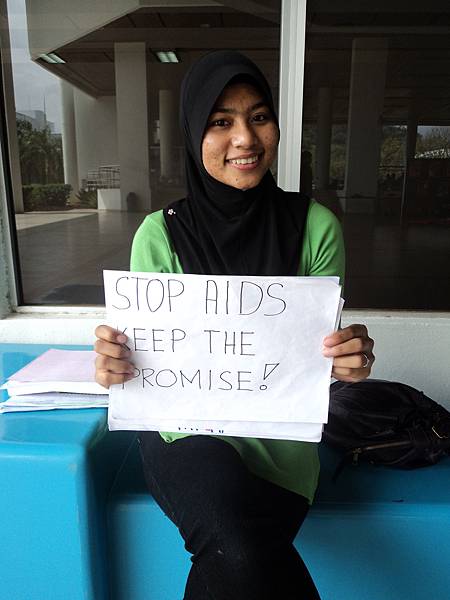 STOP AIDS
KEEP THE
PROMISE!